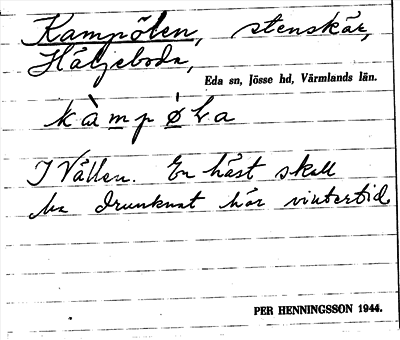 Kampölen, stenskär,
Häljeboda,
Eda sn, Jösse hd, Värmlands län.
kàmpø̀La
I Vällen. En häst skall
ha drunknat här vintertid.
PER HENNINGSSON 1944.